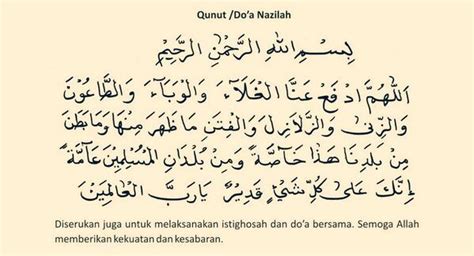 Qunut /Do’a Nazilah
بِسْمِ اللهِ الرَّحْمٰنِ الرَّحِيْمِ
اَللّٰهُمَّ ادْفَعْ عَنَّا الْغَلَآءَ وَالْوَبَآءَ وَالطَّاعُوْنَ
وَالزِّنٰى وَالزَّلَازِلَ وَالْفِتَنَ مَا ظَهَرَ مِنْهَا وَمَا بَطَنَ
مِنْ بَلَدِنَا هٰذَا خَاصَّةً وَمِنْ بُلْدَانِ الْمُسْلِمِيْنَ عَآمَّةً
إِنَّكَ عَلَى كُلِّ شَيْءٍ قَدِيْرٌ يَارَبَّ الْعَالَمِيْنَ
Diserukan juga untuk melaksanakan istighosah dan do’a bersama. Semoga Allah
memberikan kekuatan dan kesabaran.